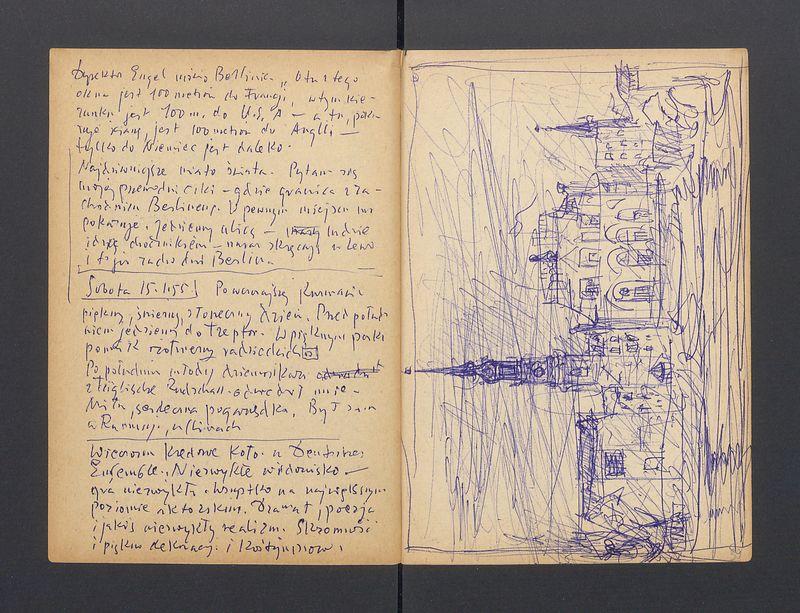 Dyrektor Engel mówi Berlinie „Otu z tego
okna jest 100 metrów do Francji, w tym kie-
runku jest 100 m. do U.S.A – a tu, poka-
zuje ścianę, jest 100 metrów do Anglii –
tylko do Niemiec jest daleko.
Najdziwniejsze miasto świata. Pytam się
mojej przewodniczki – gdzie granica z za-
chodnim Berlinem. W pewnym miejscu mi
pokazuje. Jedziemy ulicą – ludzie
idą chodnikiem – naraz skręcają w lewo
i to już zachodni Berlin.
Sobota 15.1.55
piękny, śnieżny, słoneczny dzień. Przed połud-
niem jedziemy do Treptow. W pięknym parku
pomnik żołnierzy radzieckich
Po południu młody dziennikarz
z Täglische Rundschau odwiedził mnie –
Miła, serdeczna pogawędka. Był
w Chinach
Wieczorem Kredowe Koło w Deutsches
Ensemble. Niezwykłe widowisko –
gra niezwykła wszystko na najwyższym
poziomie aktorskim. Dramat, poezja
i jakiś niezwykły realizm. Skromność
i piękno dekoracji i kostiumów.